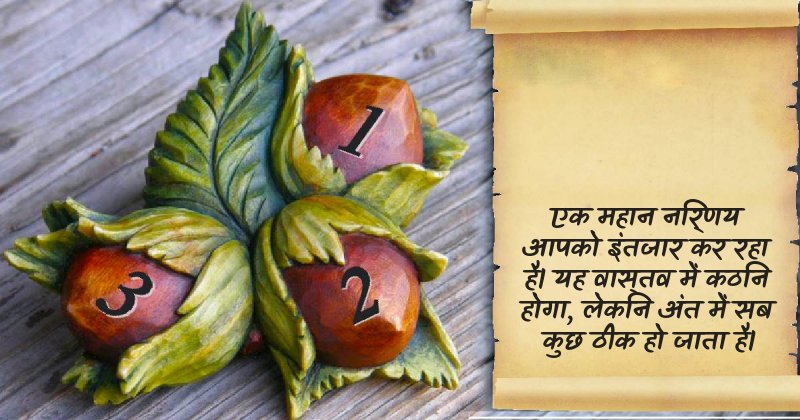 1
3
2
एक महान नरि्णय
आपको इंतजार कर रहा
है। यह वास्तव में कठनि
होगा, लेकनि अंत में सब
कुछ ठीक हो जाता है।